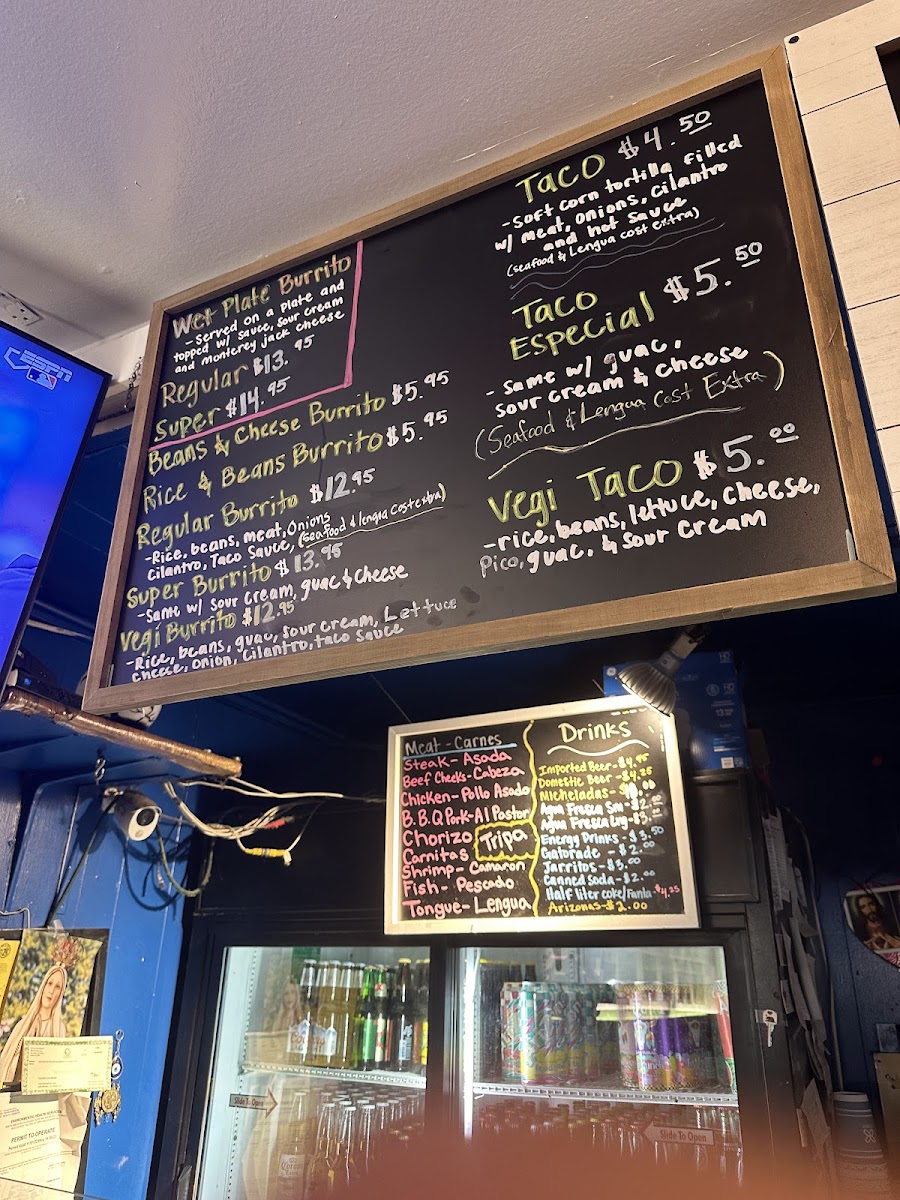 ESPN
Wet Plate Burrito
- Served on a plate and
topped w/ sauce, sour cream
and monterey jack cheese
Regular $13.95
Super $14.95
Beans & Cheese Burrito $5.95
Rice & Beans Burrito $5.95
Regular Burrito $12.95
- Rice, beans, meat, onions
cilantro, Taco Sauce, (seafood & lengua cost extra)
Super Burrito $13.95
- Same w/ sour cream, guac & cheese
Vegi Burrito $12.95
- Rice, beans, guac, sour cream, Lettuce
cheese, onion, cilantro, taco sauce
Taco $4.50
- Soft corn tortilla filled
w/ meat, onions, cilantro
and hot sauce
(seafood & Lengua cost extra)
Taco
Especial $5.50
- same w/ guac,
sour cream & cheese
(Seafood & Lengua Cost Extra)
Vegi Taco $5.00
- rice, beans, lettuce, cheese,
Pico, guac. & sour cream
Meat - Carnes
Steak - Asada
Beef Cheeks - Cabeza
Chicken - Pollo Asado
B.B.Q Pork - Al Pastor
Chorizo
Tripa
Carnitas
Shrimp - Camaron
Fish - Pescado
Tongue - Lengua
Drinks
Imported Beer - $4.95
Domestic Beer - $4.25
Micheladas -
Agua Fresca Sm -
Agua Fresca Lrg -
Energy Drinks - $3.50
Gatorade - $2.00
Jarritos - $3.00
Canned Soda - $2.00
Half liter coke/Fanta - $4.25
Arizonas - $2.00
Slide To Open
Slide To Open
PERMIT TO OPERATE